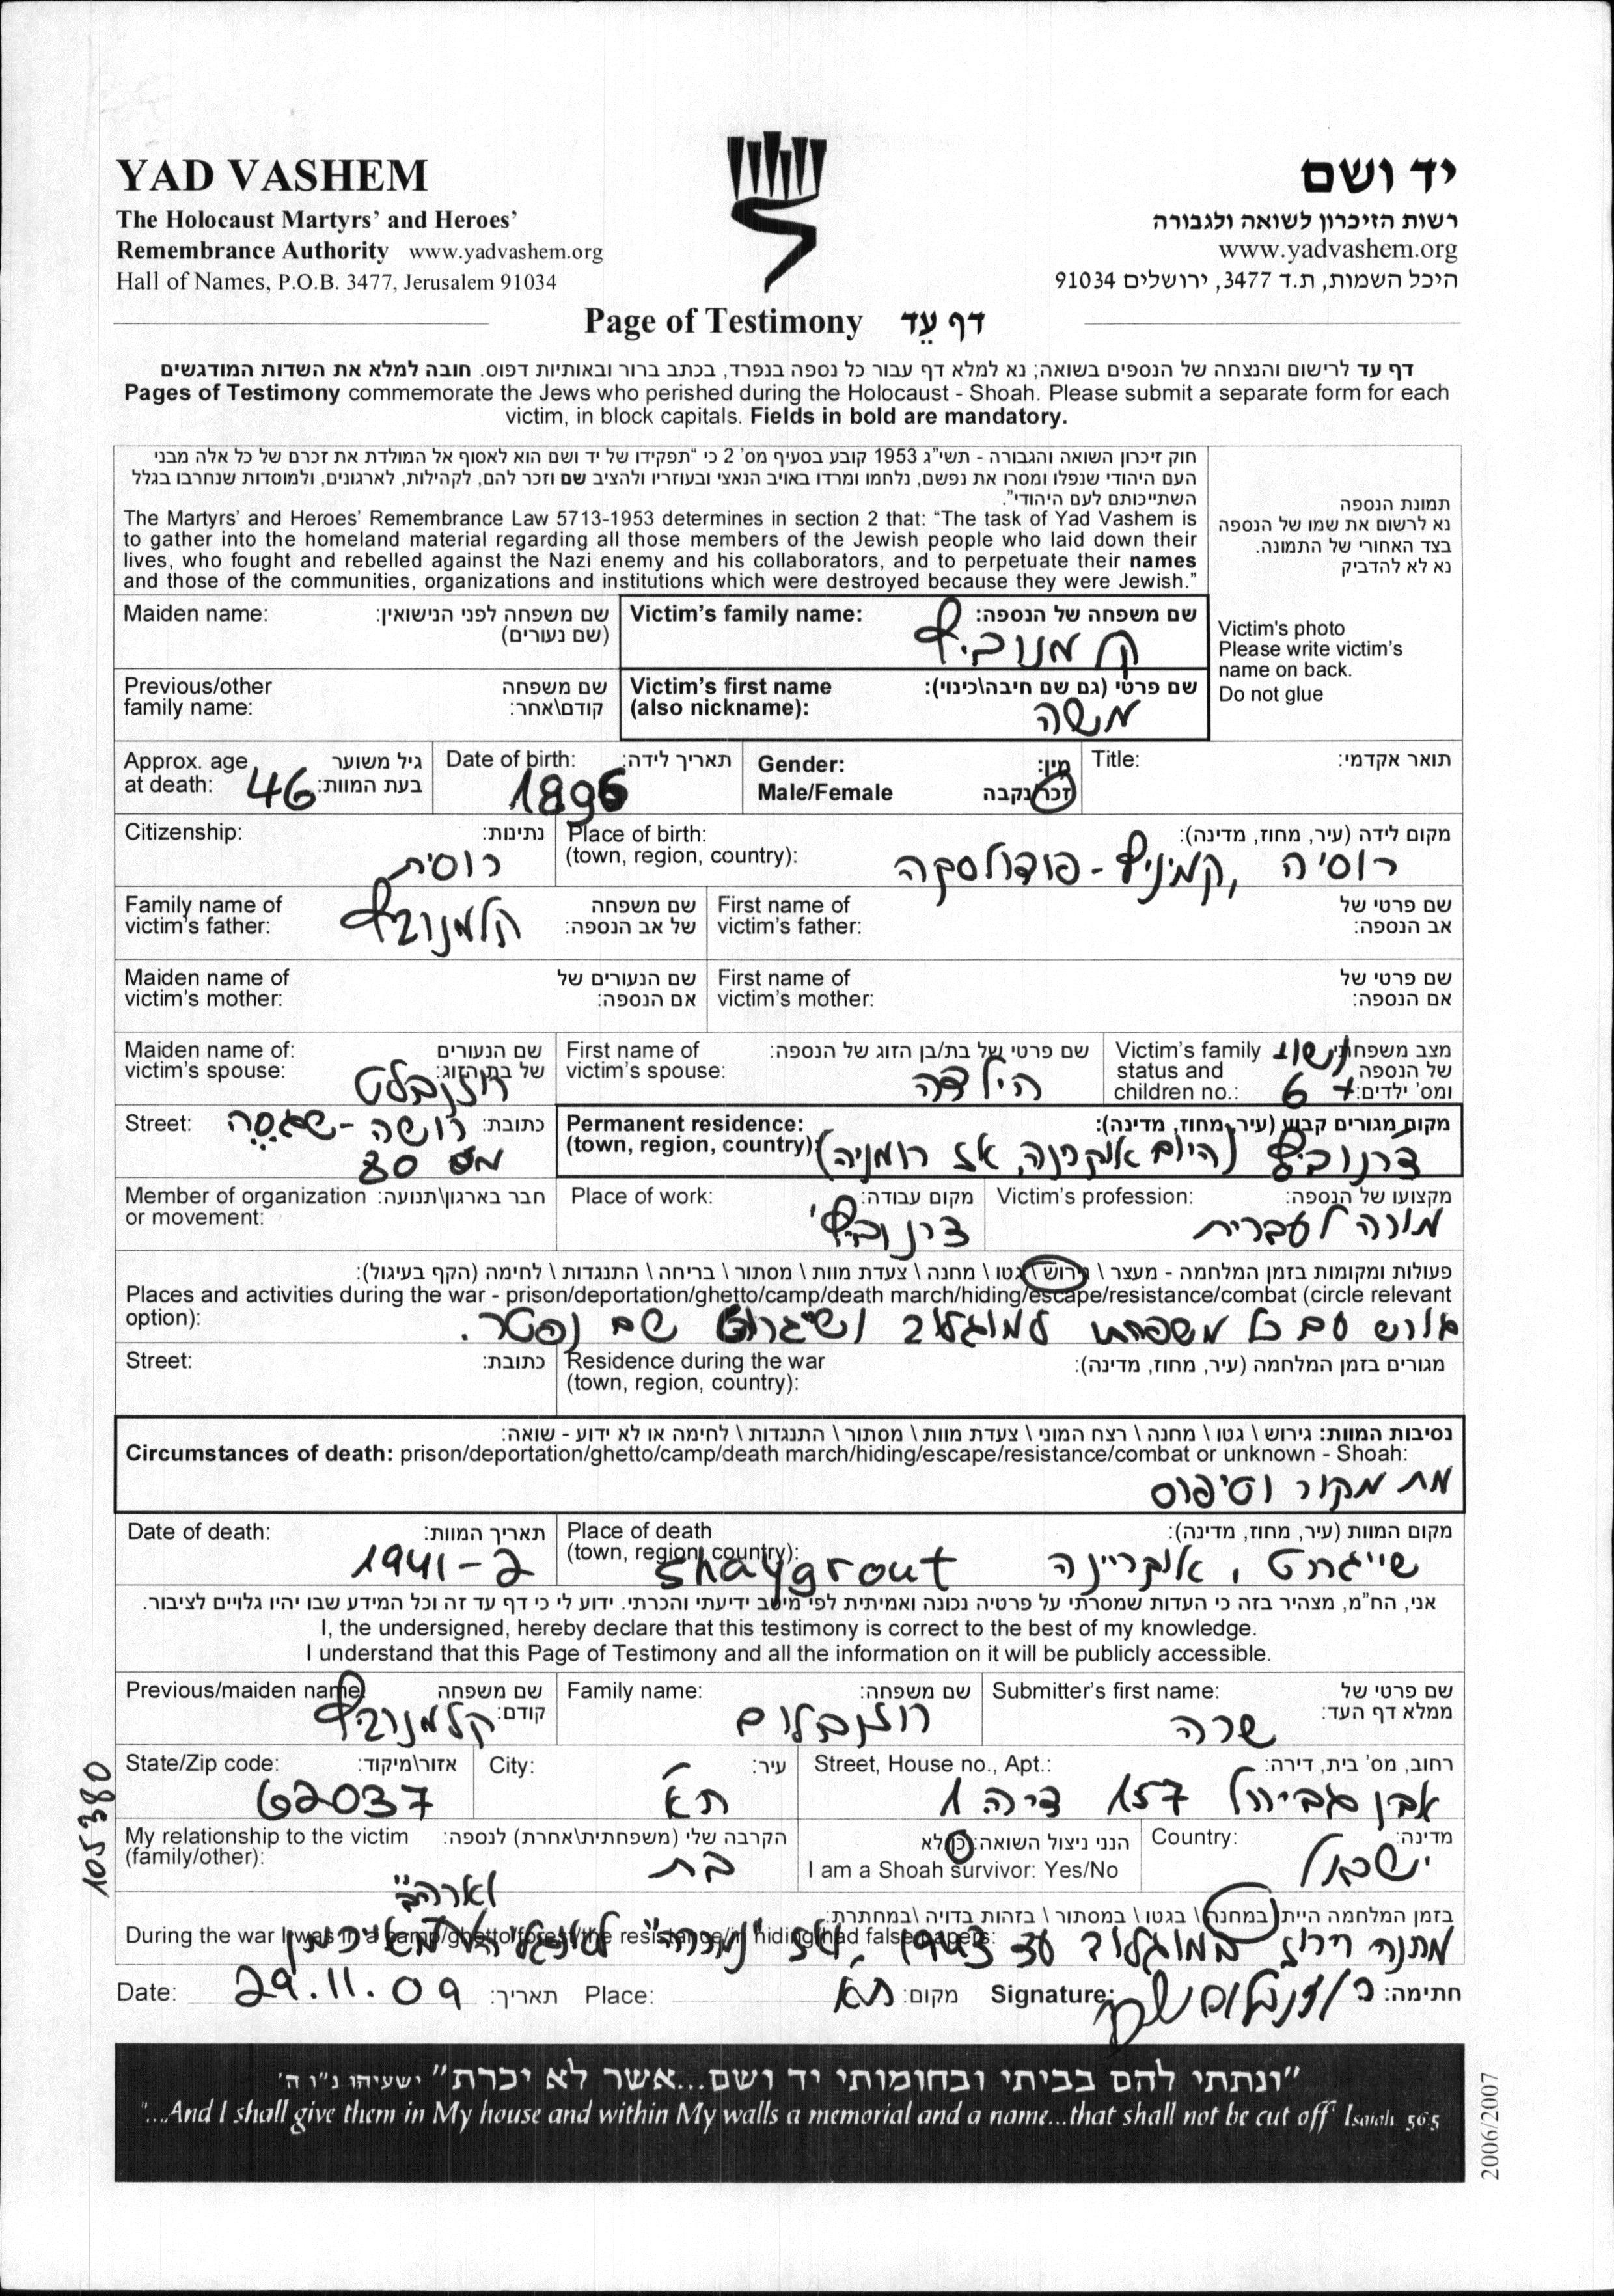 YAD VASHEM
The Holocaust Martyrs' and Heroes'
Remembrance Authority www.yadvashem.org
Hall of Names, P.O.B. 3477, Jerusalem 91034
יד ושם
רשות הזיכרון לשואה ולגבורה
www.yadvashem.org
היכל השמות, ת.ד 3477, ירושלים 91034
Page of Testimony דף עֵד
דף עד לרישום והנצחה של הנספים בשואה; נא למלא דף עבור כל נספה בנפרד, בכתב ברור ובאותיות דפוס. חובה למלא את השדות המודגשים
Pages of Testimony commemorate the Jews who perished during the Holocaust - Shoah. Please submit a separate form for each
victim, in block capitals. Fields in bold are mandatory.
חוק זיכרון השואה והגבורה - תשי"ג 1953 קובע בסעיף מס' 2 כי "תפקידו של יד ושם הוא לאסוף אל המולדת את זכרם של כל אלה מבני
העם היהודי שנפלו ומסרו את נפשם, נלחמו ומרדו באויב הנאצי ובעוזריו ולהציב שם וזכר להם, לקהילות, לארגונים, ולמוסדות שנחרבו בגלל
השתייכותם לעם היהודי".
The Martyrs' and Heroes' Remembrance Law 5713-1953 determines in section 2 that: "The task of Yad Vashem is
to gather into the homeland material regarding all those members of the Jewish people who laid down their
lives, who fought and rebelled against the Nazi enemy and his collaborators, and to perpetuate their names
and those of the communities, organizations and institutions which were destroyed because they were Jewish."
תמונת הנספה
נא לרשום את שמו של הנספה
בצד האחורי של התמונה.
נא לא להדביק
Victim's photo
Please write victim's
name on back.
Do not glue
Maiden name: שם משפחה לפני הנישואין:
(שם נעורים)
Victim's family name: שם משפחה של הנספה:
Previous/other שם משפחה
family name: קודם\אחר:
Victim's first name שם פרטי (גם שם חיבה\כינוי):
(also nickname):
משה
Approx. age גיל משוער
at death: 46 בעת המוות:
Date of birth: תאריך לידה:
1896
Gender: מין:
Male/Female זכר/נקבה
Title: תואר אקדמי:
Citizenship: נתינות:
רוסית
Place of birth: מקום לידה (עיר, מחוז, מדינה):
(town, region, country): רוסיה, קמיניץ-פודולסקה
Family name of שם משפחה
victim's father: של אב הנספה: קלמנוביץ
First name of שם פרטי של
victim's father: אב הנספה:
Maiden name of שם הנעורים של
victim's mother: אם הנספה:
First name of שם פרטי של
victim's mother: אם הנספה:
Maiden name of: שם הנעורים
victim's spouse: של בת הזוג: רוזנבלט
First name of שם פרטי של בת/בן הזוג של הנספה:
victim's spouse: הילדה
Victim's family מצב משפחתי נשוי
status and של הנספה
children no.: ומס' ילדים: + 6
Street: כתובת: רושה-שגסה
מס 80
Permanent residence: מקום מגורים קבוע (עיר, מחוז, מדינה):
(town, region, country): צרנוביץ (היום אוקרינה, אז רומניה)
Member of organization חבר בארגון\תנועה:
or movement:
Place of work: מקום עבודה:
צרנוביץ'
Victim's profession: מקצועו של הנספה:
מורה לעברית
פעולות ומקומות בזמן המלחמה - מעצר \ גירוש \ גטו \ מחנה \ צעדת מוות \ מסתור \ בריחה \ התנגדות \ לחימה (הקף בעיגול):
Places and activities during the war - prison/deportation/ghetto/camp/death march/hiding/escape/resistance/combat (circle relevant
option): גורש עם כל משפחתו למוגלוב ושיגרוט שם נפטר.
Street: כתובת:
Residence during the war מגורים בזמן המלחמה (עיר, מחוז, מדינה):
(town, region, country):
נסיבות המוות: גירוש \ גטו \ מחנה \ רצח המוני \ צעדת מוות \ מסתור \ התנגדות \ לחימה או לא ידוע - שואה:
Circumstances of death: prison/deportation/ghetto/camp/death march/hiding/escape/resistance/combat or unknown - Shoah:
מת מקור וטיפוס
Date of death: תאריך המוות:
1941-2
Place of death מקום המוות (עיר, מחוז, מדינה):
(town, region, country): shaygrout שייגרוט, אוקריינה
אני, הח"מ, מצהיר בזה כי העדות שמסרתי על פרטיה נכונה ואמיתית לפי מיטב ידיעתי והכרתי. ידוע לי כי דף עד זה וכל המידע שבו יהיו גלויים לציבור.
I, the undersigned, hereby declare that this testimony is correct to the best of my knowledge.
I understand that this Page of Testimony and all the information on it will be publicly accessible.
Previous/maiden name: שם משפחה
קודם: קלמנוביץ
Family name: שם משפחה:
רוזנבלום
Submitter's first name: שם פרטי של
ממלא דף העד:
שרה
State/Zip code: אזור\מיקוד:
62037
City: עיר:
ת"א
Street, House no., Apt.: רחוב, מס' בית, דירה:
אבן גבירול 157 דירה 1
My relationship to the victim הקרבה שלי (משפחתית\אחרת) לנספה:
(family/other): בת
הנני ניצול השואה: כן/לא
I am a Shoah survivor: Yes/No
Country: מדינה:
ישראל
בזמן המלחמה הייתי במחנה \ בגטו \ במסתור \ בזהות בדויה \ במחתרת:
During the war I was in a camp/ghetto/forest/the resistance/in hiding/had false papers:
במוגלוב עד 1943
Date: 29.11.09 תאריך: Place: ת"א מקום: Signature: חתימה:
"ונתתי להם בביתי ובחומותי יד ושם...אשר לא יכרת" ישעיהו נ"ו ה'
"...And I shall give them in My house and within My walls a memorial and a name...that shall not be cut off" Isaiah 56:5
105380
2006/2007